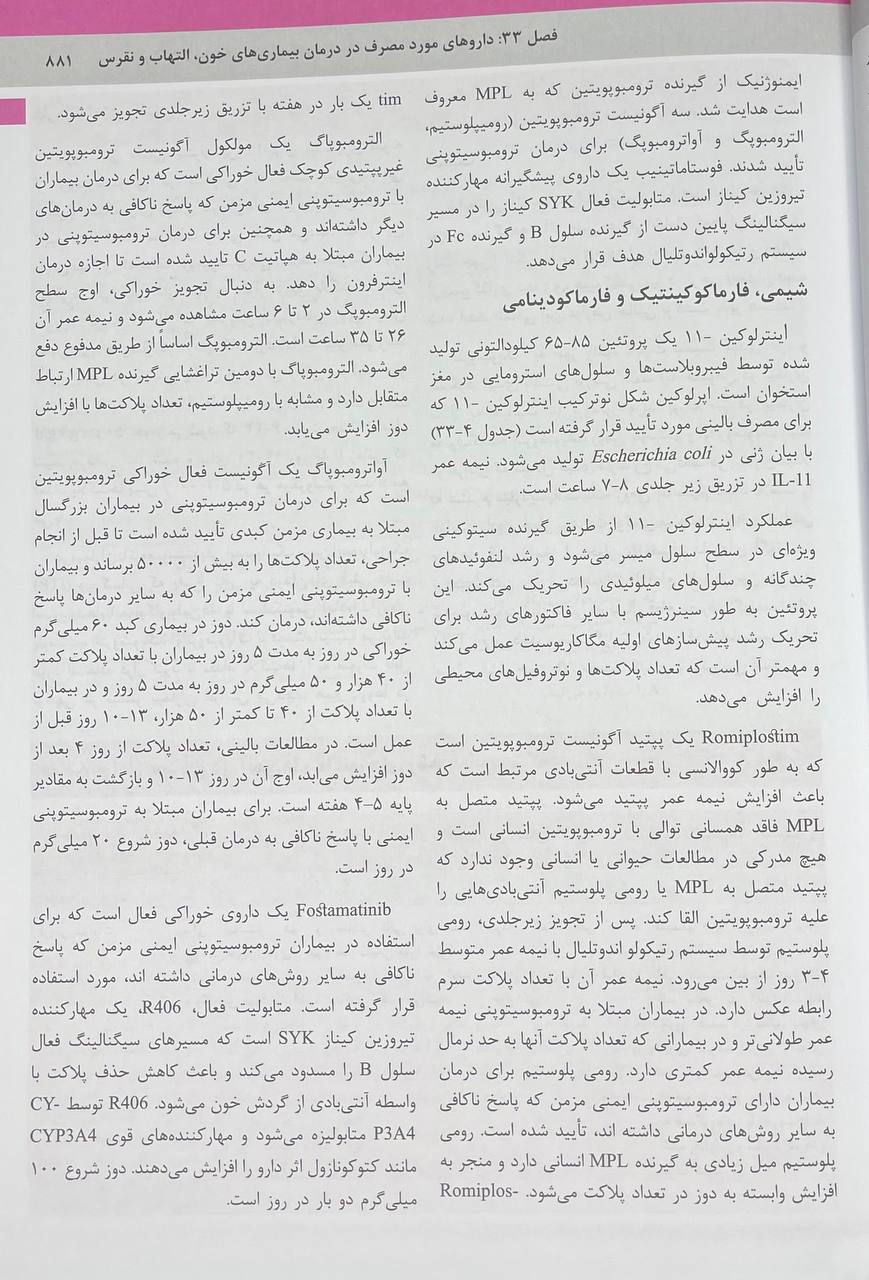 فصل ۳۳: داروهای مورد مصرف در درمان بیماری‌های خون، التهاب و نقرس ۸۸۱
ایمنوژنیک از گیرنده ترومبوپویتین که به MPL معروف
است هدایت شد. سه آگونیست ترومبوپویتین (رومیپلوستیم،
الترومبوپگ و آواترومبوپگ) برای درمان ترومبوسیتوپنی
تأیید شدند. فوستاماتینیب یک داروی پیشگیرانه مهارکننده
تیروزین کیناز است. متابولیت فعال SYK کیناز را در مسیر
سیگنالینگ پایین دست از گیرنده سلول B و گیرنده Fc در
سیستم رتیکولواندوتلیال هدف قرار می‌دهد.
شیمی، فارماکوکینتیک و فارماکودینامی
اینترلوکین -۱۱ یک پروتئین ۸۵-۶۵ کیلودالتونی تولید
شده توسط فیبروبلاست‌ها و سلول‌های استرومایی در مغز
استخوان است. اپرلوکین شکل نوترکیب اینترلوکین -۱۱ که
برای مصرف بالینی مورد تأیید قرار گرفته است (جدول ۴-۳۳)
با بیان ژنی در Escherichia coli تولید می‌شود. نیمه عمر
IL-11 در تزریق زیر جلدی ۸-۷ ساعت است.
عملکرد اینترلوکین -۱۱ از طریق گیرنده سیتوکینی
ویژه‌ای در سطح سلول میسر می‌شود و رشد لنفوئیدهای
چندگانه و سلول‌های میلوئیدی را تحریک می‌کند. این
پروتئین به طور سینرژیسم با سایر فاکتورهای رشد برای
تحریک رشد پیش‌سازهای اولیه مگاکاریوسیت عمل می‌کند
و مهمتر آن است که تعداد پلاکت‌ها و نوتروفیل‌های محیطی
را افزایش می‌دهد.
Romiplostim یک پپتید آگونیست ترومبوپویتین است
که به طور کووالانسی با قطعات آنتی‌بادی مرتبط است که
باعث افزایش نیمه عمر پپتید می‌شود. پپتید متصل به
MPL فاقد همسانی توالی با ترومبوپویتین انسانی است و
هیچ مدرکی در مطالعات حیوانی یا انسانی وجود ندارد که
پپتید متصل به MPL یا رومی پلوستیم آنتی‌بادی‌هایی را
علیه ترومبوپویتین القا کند. پس از تجویز زیرجلدی، رومی
پلوستیم توسط سیستم رتیکولو اندوتلیال با نیمه عمر متوسط
۴-۳ روز از بین می‌رود. نیمه عمر آن با تعداد پلاکت سرم
رابطه عکس دارد. در بیماران مبتلا به ترومبوسیتوپنی نیمه
عمر طولانی‌تر و در بیمارانی که تعداد پلاکت آنها به حد نرمال
رسیده نیمه عمر کمتری دارد. رومی پلوستیم برای درمان
بیماران دارای ترومبوسیتوپنی ایمنی مزمن که پاسخ ناکافی
به سایر روش‌های درمانی داشته اند، تأیید شده است. رومی
پلوستیم میل زیادی به گیرنده MPL انسانی دارد و منجر به
افزایش وابسته به دوز در تعداد پلاکت می‌شود. Romiplos-
tim یک بار در هفته با تزریق زیرجلدی تجویز می‌شود.
الترومبوپاگ یک مولکول آگونیست ترومبوپویتین
غیرپپتیدی کوچک فعال خوراکی است که برای درمان بیماران
با ترومبوسیتوپنی ایمنی مزمن که پاسخ ناکافی به درمان‌های
دیگر داشته‌اند و همچنین برای درمان ترومبوسیتوپنی در
بیماران مبتلا به هپاتیت C تایید شده است تا اجازه درمان
اینترفرون را دهد. به دنبال تجویز خوراکی، اوج سطح
الترومبوپگ در ۲ تا ۶ ساعت مشاهده می‌شود و نیمه عمر آن
۲۶ تا ۳۵ ساعت است. الترومبوپگ اساساً از طریق مدفوع دفع
می‌شود. الترومبوپاگ با دومین تراغشایی گیرنده MPL ارتباط
متقابل دارد و مشابه با رومیپلوستیم، تعداد پلاکت‌ها با افزایش
دوز افزایش می‌یابد.
آواترومبوپاگ یک آگونیست فعال خوراکی ترومبوپویتین
است که برای درمان ترومبوسیتوپنی در بیماران بزرگسال
مبتلا به بیماری مزمن کبدی تأیید شده است تا قبل از انجام
جراحی، تعداد پلاکت‌ها را به بیش از ۵۰۰۰۰ برساند و بیماران
با ترومبوسیتوپنی ایمنی مزمن را که به سایر درمان‌ها پاسخ
ناکافی داشته‌اند، درمان کند. دوز در بیماری کبد ۶۰ میلی‌گرم
خوراکی در روز به مدت ۵ روز در بیماران با تعداد پلاکت کمتر
از ۴۰ هزار و ۵۰ میلی‌گرم در روز به مدت ۵ روز و در بیماران
با تعداد پلاکت از ۴۰ تا کمتر از ۵۰ هزار، ۱۳-۱۰ روز قبل از
عمل است. در مطالعات بالینی، تعداد پلاکت از روز ۴ بعد از
دوز افزایش می‌ابد، اوج آن در روز ۱۳-۱۰ و بازگشت به مقادیر
پایه ۵-۴ هفته است. برای بیماران مبتلا به ترومبوسیتوپنی
ایمنی با پاسخ ناکافی به درمان قبلی، دوز شروع ۲۰ میلی‌گرم
در روز است.
Fostamatinib یک داروی خوراکی فعال است که برای
استفاده در بیماران ترومبوسیتوپنی ایمنی مزمن که پاسخ
ناکافی به سایر روش‌های درمانی داشته اند، مورد استفاده
قرار گرفته است. متابولیت فعال، R406، یک مهارکننده
تیروزین کیناز SYK است که مسیرهای سیگنالینگ فعال
سلول B را مسدود می‌کند و باعث کاهش حذف پلاکت با
واسطه آنتی‌بادی از گردش خون می‌شود. R406 توسط CY-
P3A4 متابولیزه می‌شود و مهارکننده‌های قوی CYP3A4
مانند کتوکونازول اثر دارو را افزایش می‌دهند. دوز شروع ۱۰۰
میلی‌گرم دو بار در روز است.